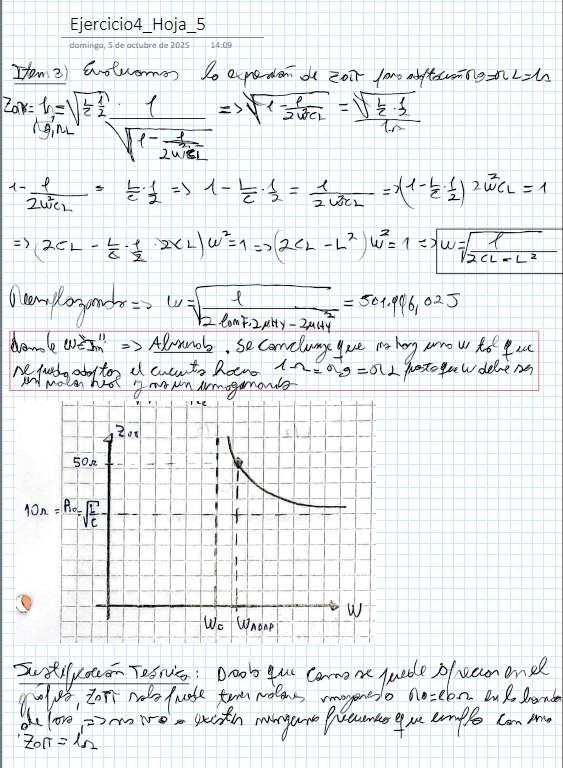 Ejercicio4_Hoja_5
domingo, 5 de octubre de 2025 14:09
Item 3) Evaluamos la expresión de Zoπ para adaptación Rg=RL=1Ω
1 - 1/(2w²CL) = L/C · 1/2 => 1 - L/C · 1/2 = 1/(2w²CL) => (1 - L/C · 1/2) 2w²CL = 1
=> (2CL - L/C · 1/2 · 2CL) w² = 1 => (2CL - L²) w² = 1 => w = √(1/(2CL - L²))
Reemplazando => w = = 501.996,02J
donde w∈"Im" => Absurdo. Se concluye que no hay una w tal que
se pueda adaptar el circuito hacia 1Ω = Rg = RL puesto que w debe ser
un valor real y no un imaginario
Zoπ
50Ω
10Ω = Ro = √(L/C)
Wc WADAP W
Justificación Teórica: Dado que como se puede apreciar en el
gráfico, Zoπ solo puede tener valores en la banda
de paso, => no va a existir ninguna frecuencia que cumpla con una
Zoπ = 1Ω